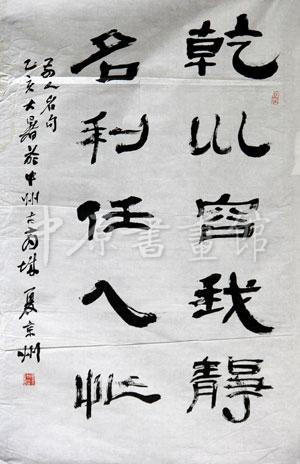 乾坤容我静
名利任人忙
前人名句
乙亥大暑於中州古商城夏京州
中原書畫馆